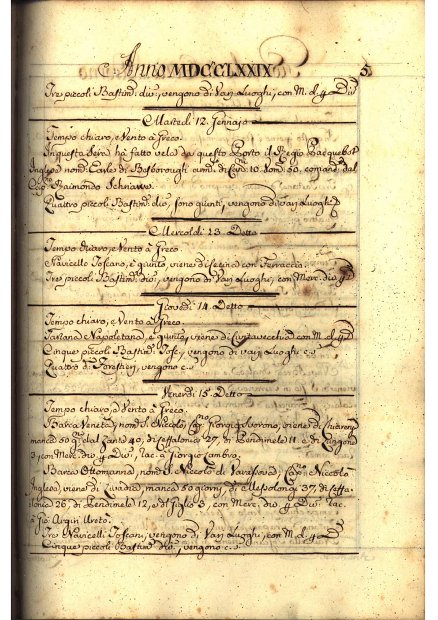 Anno MDCCLXXIX 5
Tre piccoli Bastim.ti div.i, vengono di Vari Luoghi, con M. d. p. Div.i
Martedi 12. Jennajo
Tempo chiaro, e Vento à Greco.
In questa Sera hà fatto vela da questo Porto il Regio Pacquebot
Inglese nom.to Earle of Besborough arm.to di Cann. 10. Uom. 50. comand. dal
Cap. Raimondo
Quattro piccoli Bastim.ti div.i, sono giunti, vengono di Vari Luoghi
Mercoldi 13. Detto
Tempo Chiaro, e Vento à Greco.
Navicello Toscano, è giunto, viene di con Ferraccia.
Tre piccoli Bastim.ti div.i, vengono di Vari Luoghi, con Merc. div.
Giovedi 14. Detto
Tempo chiaro, e Vento à Greco.
Tartana Napoletana, è giunta, viene di Civitavecchia con M. d.
Cinque piccoli Bastim.ti Tosc.i, vengono di Vari Luoghi c.s.
Quattro d.i Forestieri, vengono c.s.
Venerdi 15. Detto
Tempo chiaro, e Vento à Greco.
Barca Veneta, nom.ta S. Niccolò, Cap.no Giorgio, viene di
manca 50 g. dal Zante 40, di Ceffalonia 27, di Bendinele 11. e di
3, con Merc. div. p. Div.i, Rac. à Giorgio Lambro.
Barca Ottomanna, nom.ta S. Niccolò di, Cap.no Niccolò
Inglesa, viene di Livadia, manca 50 giorni, di Messolongi 37, di Ceffa-
lonia 26, di Bendinele 12, e del Giglio 3, con Merc. div. p. Div.i Rac.
à Gio. Argiri Ureto.
Tre Navicelli Toscani, vengono di Vari Luoghi, con M. d. p. D.i
Cinque piccoli Bastim.ti div.i, vengono c.s.